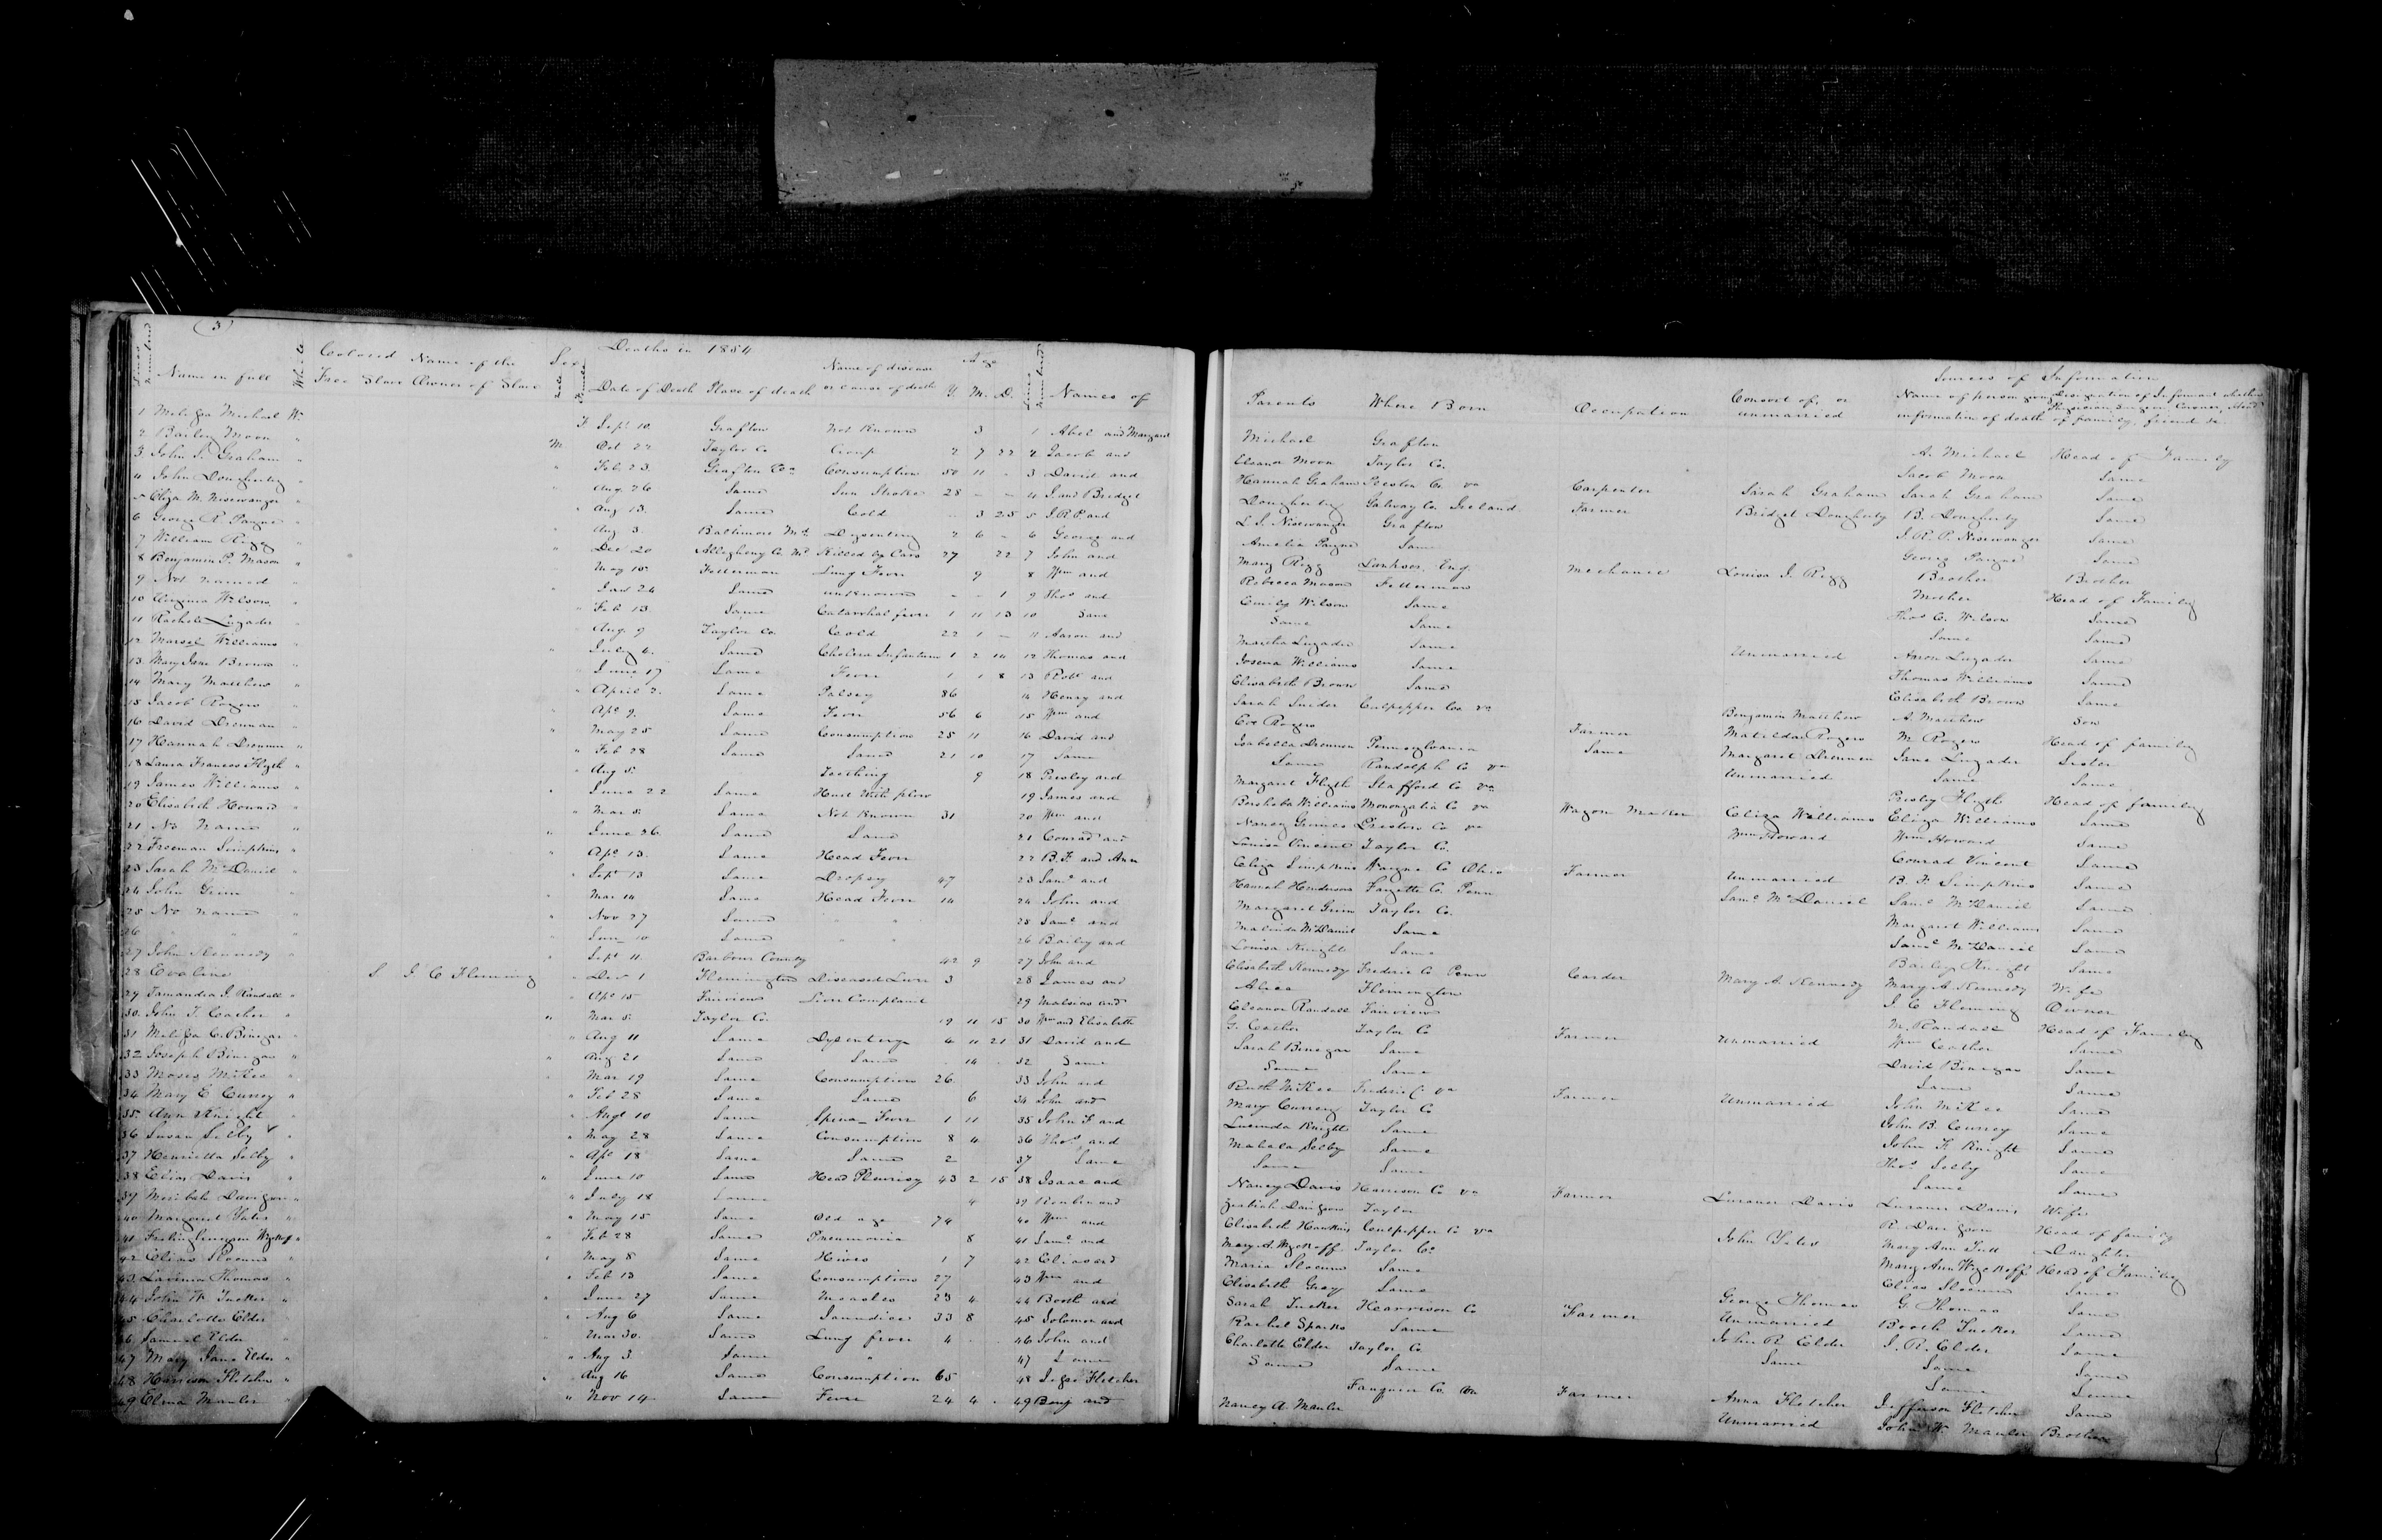 3
Deaths in 1854
Lines numbered Name in full White Colored Name of the Sex Name of disease Age Lines numbered
Free Slave Owner of Slave Male Female Date of Death Place of death or cause of death Y. M. D. Names of
Sources of Information
Parents Where Born Occupation Consort of, or unmarried Name of person giving information of death Designation of Informant whether Physician, Surgeon, Coroner, Head of family, friend &c.
1 Michael W. F Sept 10. Grafton Not Known 3 1 Abel and Margaret Michael Grafton A. Michael Head of Family
2 Bailey Moon " M Oct 22 Taylor Co Croup 2 7 22 2 Jacob and Eleanor Moon Taylor Co. Jacob Moon Same
3 John S. Graham " " Feb 23. Grafton Consumption 50 11 - 3 David and Hannah Graham Preston Co va Carpenter Sarah Graham Sarah Graham Same
4 John Dougherty " " Aug 26 Same Sun Stroke 28 - - 4 J. and Bridget Dougherty Galway Co. Ireland Farmer Bridget Dougherty B. Dougherty Same
5 Eliza M. Nisewanger " " Aug 13. Same Cold 3 25 5 J. R. P. and L. S. Nisewanger Grafton J. R. P. Nisewanger Same
6 George R. Payne " Aug 3. Baltimore Md. Dysentery 2 6 - 6 George and Amelia Payne Same George Payne Same
7 William Rigg " " Dec 20 Allegheny Co. Md Killed by Cars 27 22 7 John and Mary Rigg Eng. Mechanic Louisa J. Rigg Brother Brother
8 Benjamin P. Mason " May 15. Fetterman Lung Fever 9 8 Wm and Rebecca Mason Fetterman Mother Head of Family
9 Not Named " Jan 24 Same unknown - - 1 9 Thos and Emily Wilson Same Thos C. Wilson Same
10 Virginia Wilson " " Feb 13. Same Catarrhal fever 1 11 13 10 Same Same Same Same Same
11 Rachel Luzader " Aug. 9 Taylor Co. Cold 22 1 - 11 Aaron and Martha Luzader Same Unmarried Aaron Luzader Same
12 Williams " " July 4. Same Cholera Infantum 1 2 14 12 Thomas and Josena Williams Same Thomas Williams Same
13 Mary Jane Brown " " June 17 Same Fever 1 1 8 13 Robt and Elizabeth Brown Same Elizabeth Brown Same
14 Mary Matthew " " April 3. Same Palsey 86 14 Henry and Sarah Snider Culpepper Co va Benjamin Matthew A. Matthew Son
15 Jacob Rogers " Apl 9. Same Fever 56 6 15 Wm and Eve Rogers Farmer Matilda Rogers M Rogers Head of family
16 David Drennan " " May 25 Same Consumption 25 11 16 David and Isabella Drennen Pennsylvania Same Margaret Drennen Jane Luzader Sister
17 Hannah Drennen " " Feb 28 Same Same 21 10 17 Same Same Randolph Co va Unmarried Same Same
18 Laura Frances Flyth " " Aug 5. Teething 9 18 Presley and Margaret Flyth Stafford Co va Presley Flyth Head of family
19 James Williams " " June 22 Same Hurt with plow 19 James and Williams Monongalia Co va Wagon Maker Eliza Williams Eliza Williams Same
20 Elizabeth Howard " " Mar 5. Same Not Known 31 20 Wm and Nancy Grimes Preston Co va Wm Howard Wm Howard Same
21 No Name " " June 26. Same Same 21 Conrad and Louisa Vincent Taylor Co. Conrad Vincent Same
22 Freeman Simpkins " Apl 13. Same Head Fever 22 B. F. and Ann Eliza Simpkins Wayne Co Ohio Farmer Unmarried B. F. Simpkins Same
23 Sarah McDaniel " " Sept 13 Same Dropsy 47 23 Saml and Hannah Henderson Fayette Co. Penn Saml McDaniel Saml McDaniel Same
24 John Grim " Mar 14 Same Head Fever 14 24 John and Margaret Grim Taylor Co. Margaret Williams Same
25 No name " " Nov 27 Same " " 25 Saml and Malinda McDaniel Same Saml McDaniel Same
26 " " " " Jan 10 Same " " 26 Bailey and Louisa Knight Same Bailey Knight Same
27 John Kennedy " " Sept 11. Barbour County 42 9 27 John and Elizabeth Kennedy Frederic Co Penn Carder Mary A. Kennedy Mary A. Kennedy Wife
28 Evaline S J. C Fleming " Dec 1 Flemington Diseased Liver 3 28 James and Alice Flemington J. C Fleming Owner
29 Tamandra J. Randall " " Apl 15 Fairview Liver Complaint 29 and Eleanor Randall Fairview M. Randall Head of Family
30 John T. Cather " " Mar 5. Taylor Co. 19 11 15 30 Wm and Elizabeth G. Cather Taylor Co Farmer Unmarried Wm Cather Same
31 C. Binegar " " Aug 11 Same Dysentery 4 11 21 31 David and Sarah Binegar Same David Binegar Same
32 Joseph Binegar " " Aug 21 Same Same 14 - 32 Same Same Same Same Same
33 Moses McKee " " Mar 19 Same Consumption 26. 33 John and Ruth McKee Frederic C. va Farmer Unmarried John McKee Same
34 Mary E Currey " " Feb 28 Same Same 6 34 John and Mary Currey Taylor Co John B. Currey Same
35 Ann Knight " " Augt 10 Same Fever 1 11 35 John F and Lucinda Knight Same John F. Knight Same
36 Susan Selby " " May 28 Same Consumption 8 4 36 Thos. and Mahala Selby Same Thos. Selby Same
37 Henrietta Selby " " Apl 18 Same Same 2 37 Same Same Same Same Same
38 Elias Davis " " June 10 Same Head Pleurisy 43 2 15 38 Isaac and Nancy Davis Harrison Co va Farmer Luraner Davis Luraner Davis Wife
39 " " July 18 Same 4 39 Reuben and Taylor R. Head of family
40 Margaret Yates " " May 15 Same Old age 74 40 Wm and Elizabeth Hawkins Culpepper Co va John Yates Mary Ann Daughter
41 Wyckoff " " Feb 28 Same Pneumonia 8 41 Saml and Mary A. Wyckoff Taylor Co Mary Ann Wyckoff Head of Family
42 Elias Slocum " " May 8 Same Hives 1 7 42 Elias and Maria Slocum Same Elias Slocum Same
43 Lavina Thomas " " Feb 13 Same Consumption 27 43 Wm and Elizabeth Gray Same George Thomas G. Thomas Same
44 John W Tucker " " June 27 Same Measles 23 4 44 Booth and Sarah Tucker Harrison Co Farmer Unmarried Booth Tucker Same
45 Charlotte Elder " " Aug 6 Same Jaundice 33 8 45 Solomon and Rachel Sparks Same John R. Elder J. R. Elder Same
46 Samuel Elder " " Mar 30. Same Lung fever 4 46 John and Charlotte Elder Taylor Co. Same Same Same
47 Mary Jane Elder " " Aug 3. Same " 47 Same Same Same Same Same
48 Harrison Fletcher " " Aug 16 Same Consumption 65 48 Fletcher Fauquier Co. Va Farmer Anna Fletcher Jefferson Fletcher Same
49 Elma Manler " " Nov 14 Same Fever 24 4 - 49 Benj and Nancy A. Manler Unmarried John W. Manler Brother